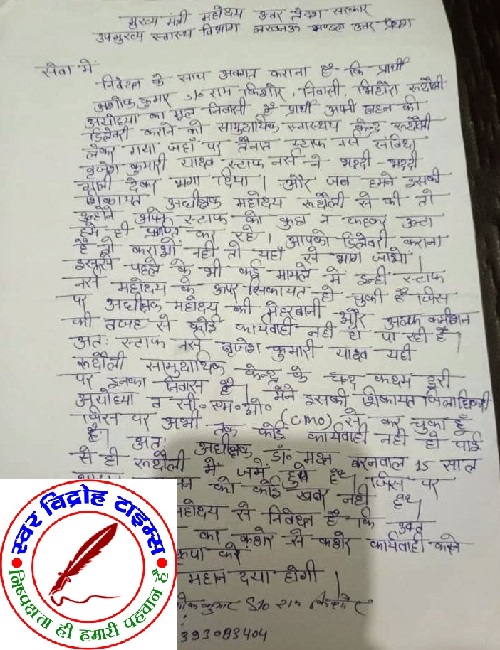 मुख्य मंत्री महोदय उत्तर प्रदेश सरकार
उपमुख्य स्वास्थ्य विभाग लखनऊ उत्तर प्रदेश
सेवा में
निवेदन के साथ अवगत कराना है कि प्रार्थी
अशोक कुमार S/o राम किशोर निवासी रूदौली
अयोध्या का मूल निवासी है प्रार्थी अपनी बहन की
डिलेवरी कराने को सामुदायिक स्वास्थ्य केन्द्र रूदौली
लेकर गया जहां पर तैनात स्टाफ नर्स
कुमारी यादव स्टाफ नर्स ने भद्दी भद्दी
गाली देकर भगा दिया। और जब हमने इसकी
शिकायत अधीक्षक महोदय रूदौली से की तो
उन्होंने अपने स्टाफ को कुछ न कहकर उल्टा
हमें ही कर रहे। आपको डिलेवरी कराना
है तो कराओ नही तो यहाँ से भाग जाओ।
इससे पहले के भी कई मामले में इन्ही स्टाफ
नर्स महोदय के ऊपर शिकायत हो चुकी है जिस
पर अधीक्षक महोदय की मेहरबानी और कमीशन
की वजह से कोई कार्यवाही नही हो पा रही है।
अतः स्टाफ नर्स कुमारी यादव यही
रूदौली सामुदायिक केन्द्र के चन्द कदम दूरी
पर इनका निवास है। मैंने इसकी शिकायत जिलाधिकारी
अयोध्या व सी० एम० ओ० (CMO) से कर चुका है
जिस पर अभी तक कोई कार्यवाही नही हो पाई
है। अतः अधीक्षक डॉ० मदन बरनवाल 15 साल
से ही रूदौली में जमे हुये है। जिस पर
को कोई खबर नही है।
महोदय से निवेदन है कि उक्त
का कठोर से कठोर कार्यवाही करने
कृपा करें
महान दया होगी।
कुमार S/o राम किशोर
393093404
स्वर विद्रोह टाइम्स
निष्पक्षता ही हमारी पहचान है